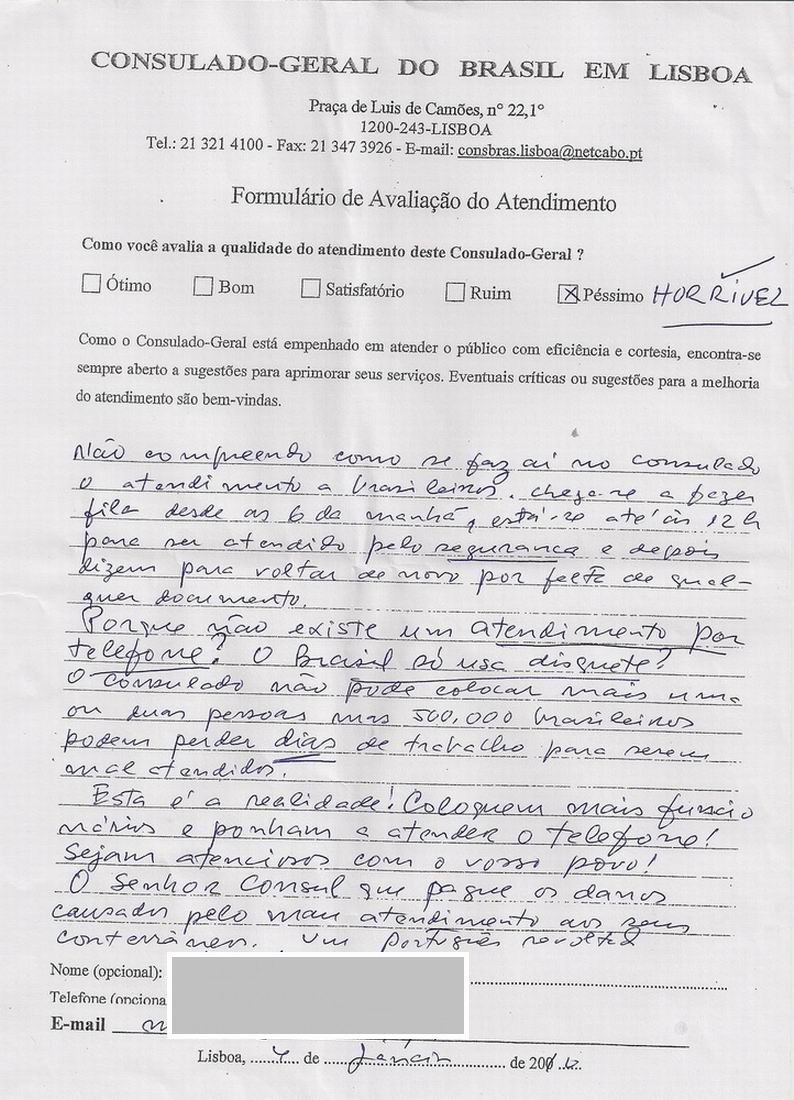 CONSULADO-GERAL DO BRASIL EM LISBOA
Praça de Luis de Camões, n° 22,1°
1200-243-LISBOA
Tel.: 21 321 4100 - Fax: 21 347 3926 - E-mail: consbras.lisboa@netcabo.pt
Formulário de Avaliação do Atendimento
Como você avalia a qualidade do atendimento deste Consulado-Geral ?
Ótimo Bom Satisfatório Ruim Péssimo HORRÍVEL
Como o Consulado-Geral está empenhado em atender o público com eficiência e cortesia, encontra-se
sempre aberto a sugestões para aprimorar seus serviços. Eventuais críticas ou sugestões para a melhoria
do atendimento são bem-vindas.
Não compreendo como se faz aí no consulado
o atendimento a brasileiros. chega-se a fazer
fila desde as 6 da manhã, está-se até às 12h
para ser atendido pelo segurança e depois
dizem para voltar de novo por falta de qual-
quer documento.
Porque não existe um atendimento por
telefone? O Brasil só usa disquete?
O consulado não pode colocar mais uma
ou duas pessoas mas 500.000 brasileiros
podem perder dias de trabalho para serem
mal atendidos.
Esta é a realidade! Coloquem mais funcio
nários e ponham a atender o telefone!
Sejam atenciosos com o vosso povo!
O Senhor Consul que pague os danos
causados pelo mau atendimento aos seus
conterrâneos. Um Português revoltad
Nome (opcional):
Telefone (opciona
E-mail
Lisboa, de Janeir de 20